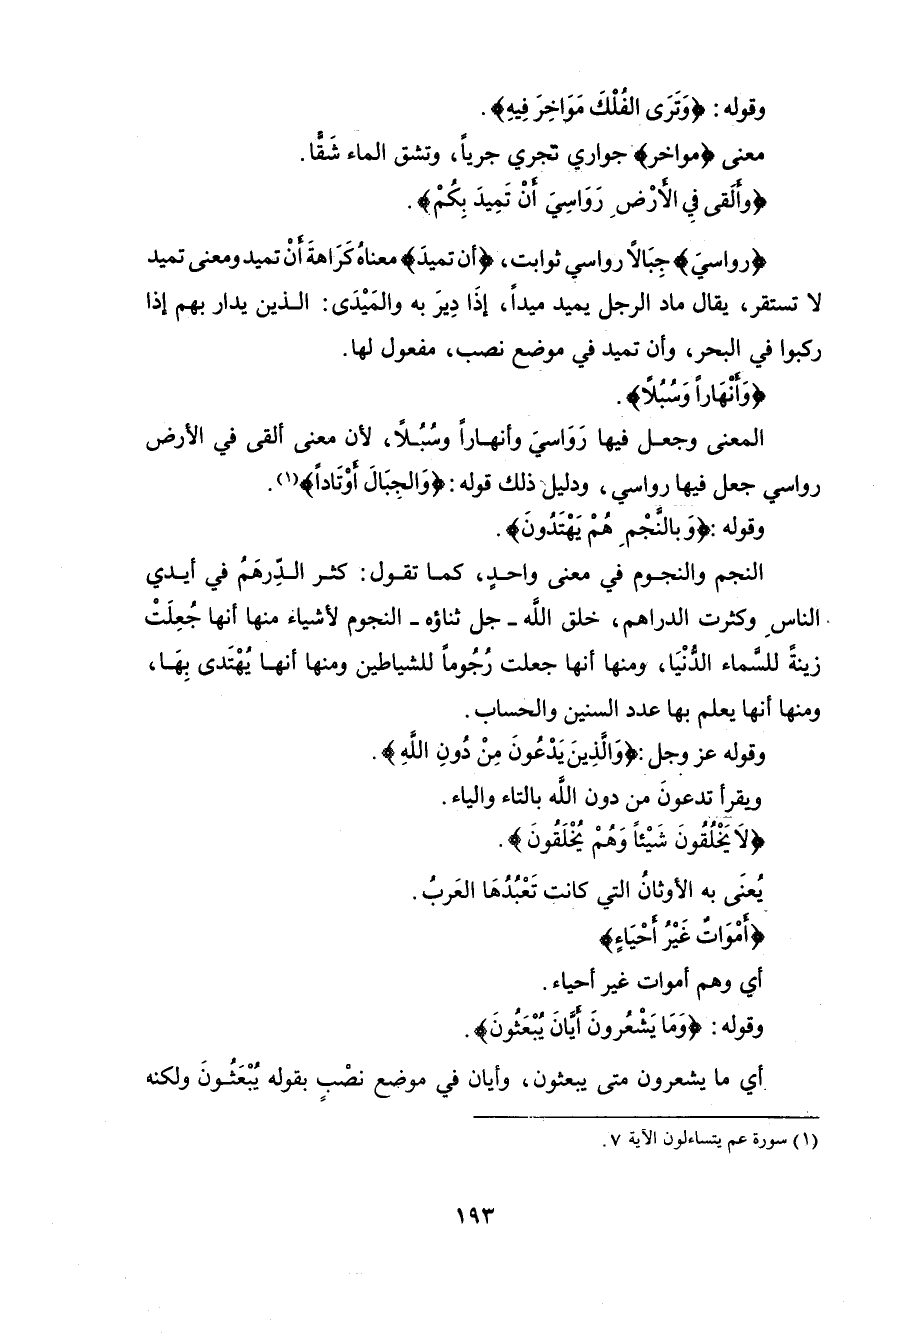 وقوله : ﴿وَتَرَى الفُلْكَ مَوَاخِرَ فِيهِ﴾ .
معنى ﴿مواخر﴾ جواري تجري جرياً ، وتشق الماء شَقًّا .
﴿وأَلَقى في الأَرْضِ رَوَاسِيَ أَنْ تَمِيدَ بِكُمْ﴾ .
﴿رواسيَ﴾ جِبَالًا رواسي ثوابت ، ﴿أن تميدَ﴾ معناه كَرَاهةَ أَنْ تميد ومعنى تميد
لا تستقر ، يقال ماد الرجل يميد ميداً ، إذَا دِيرَ به والمَيْدَى : الـذين يدار بهم إذا
ركبوا في البحر ، وأن تميد في موضع نصب ، مفعول لها .
﴿وَأَنْهَاراً وَسُبُلًا﴾ .
المعنى وجعـل فيها رَوَاسيَ وأنهـاراً وسُبُـلًا ، لأن معنى ألقى في الأرض
رواسي جعل فيها رواسي ، ودليل ذلك قوله : ﴿وَالجِبَالَ أَوْتَاداً﴾(١) .
وقوله : ﴿وَبالنَّجْمِ هُمْ يَهْتَدُونَ﴾ .
النجم والنجـوم في معنى واحـدٍ ، كمـا تقـول : كثـر الـدِّرهَمُ في أيـدي
الناس وكثرت الدراهم ، خلق اللَّه ـ جل ثناؤه ـ النجوم لأشياء منها أنها جُعِلَتْ
زينةً للسَّماء الدُّنْيَا ، ومنها أنها جعلت رُجُوماً للشياطين ومنها أنهـا يُهْتَدى بِهَـا ،
ومنها أنها يعلم بها عدد السنين والحساب .
وقوله عز وجل : ﴿وَالَّذِينَ يَدْعُونَ مِنْ دُونِ اللَّهِ﴾ .
ويقرأ تدعونَ من دون اللَّه بالتاء والياء .
﴿لَا يَخْلُقُونَ شَيْئاً وَهُمْ يُخْلَقُونَ﴾ .
يُعنَى به الأوثانُ التي كانت تَعْبُدُهَا العَربُ .
﴿أَمْوَاتٌ غَيْرُ أَحْيَاءٍ﴾
أي وهم أموات غير أحياء .
وقوله : ﴿وَمَا يَشْعُرونَ أَيَّانَ يُبْعَثُونَ﴾ .
أي ما يشعرون متى يبعثون ، وأيان في موضع نصْبٍ بقوله يُبْعَثُـونَ ولكنه
(١) سورة عم يتساءلون الآية ٧ .
١٩٣